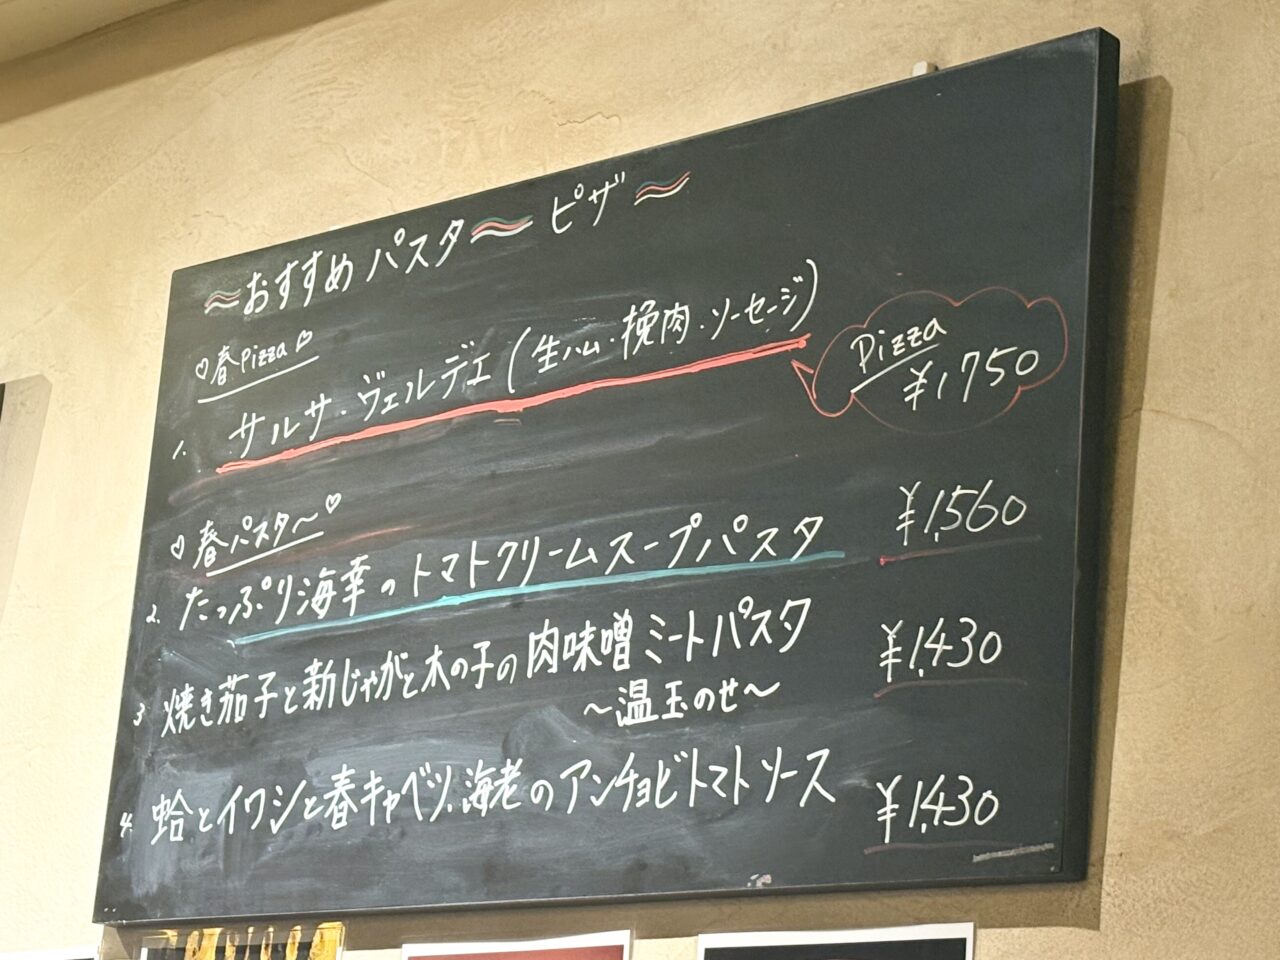 〜おすすめパスタ〜ピザ〜
♡春Pizza♡
1. サルサ・ヴェルデェ(生ハム・挽肉・ソーセージ)
Pizza
¥1750
♡春パスタ〜♡
2. たっぷり海幸のトマトクリームスープパスタ ¥1,560
3 焼き茄子と新じゃがと木の子の肉味噌ミートパスタ ¥1,430
〜温玉のせ〜
4. 蛤とイワシと春キャベツ、海老のアンチョビトマトソース ¥1,430